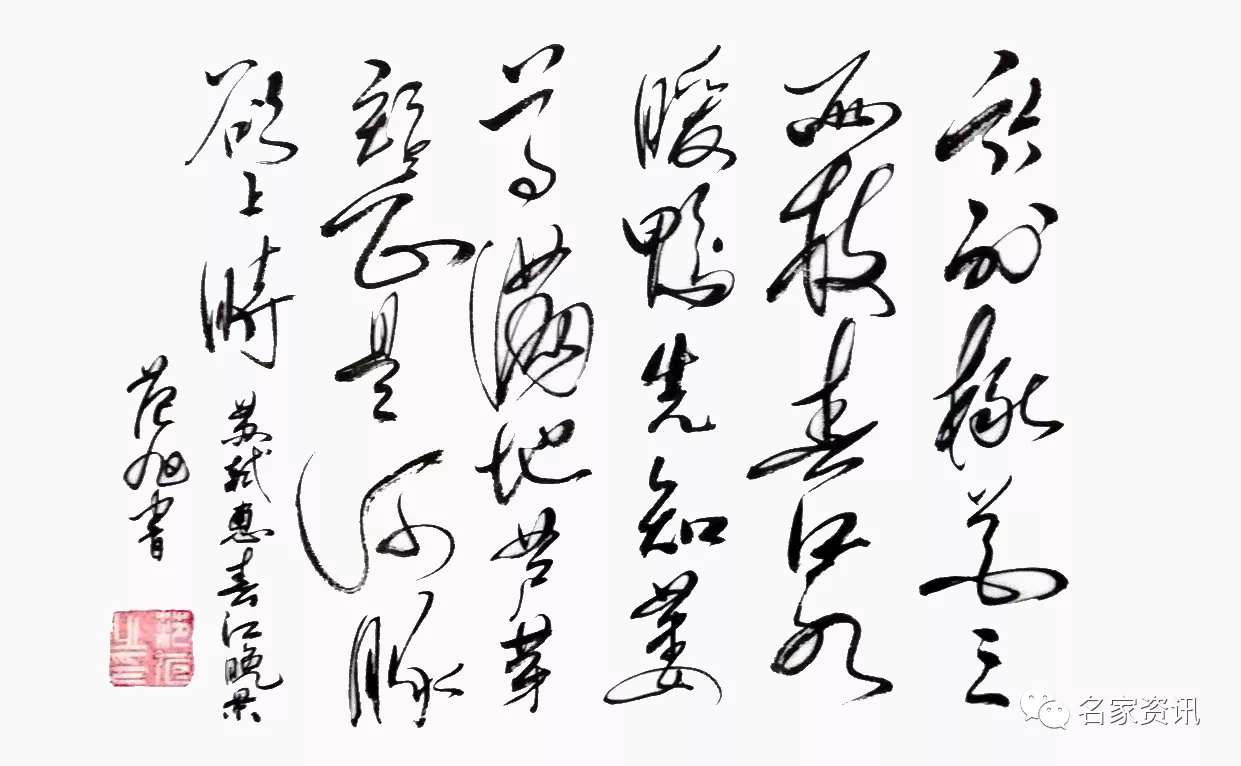 竹外桃花三
两枝春江水
暖鸭先知蒌
蒿满地芦芽
短正是河豚
欲上時
苏轼惠春江晚景
范旭書
名家资讯